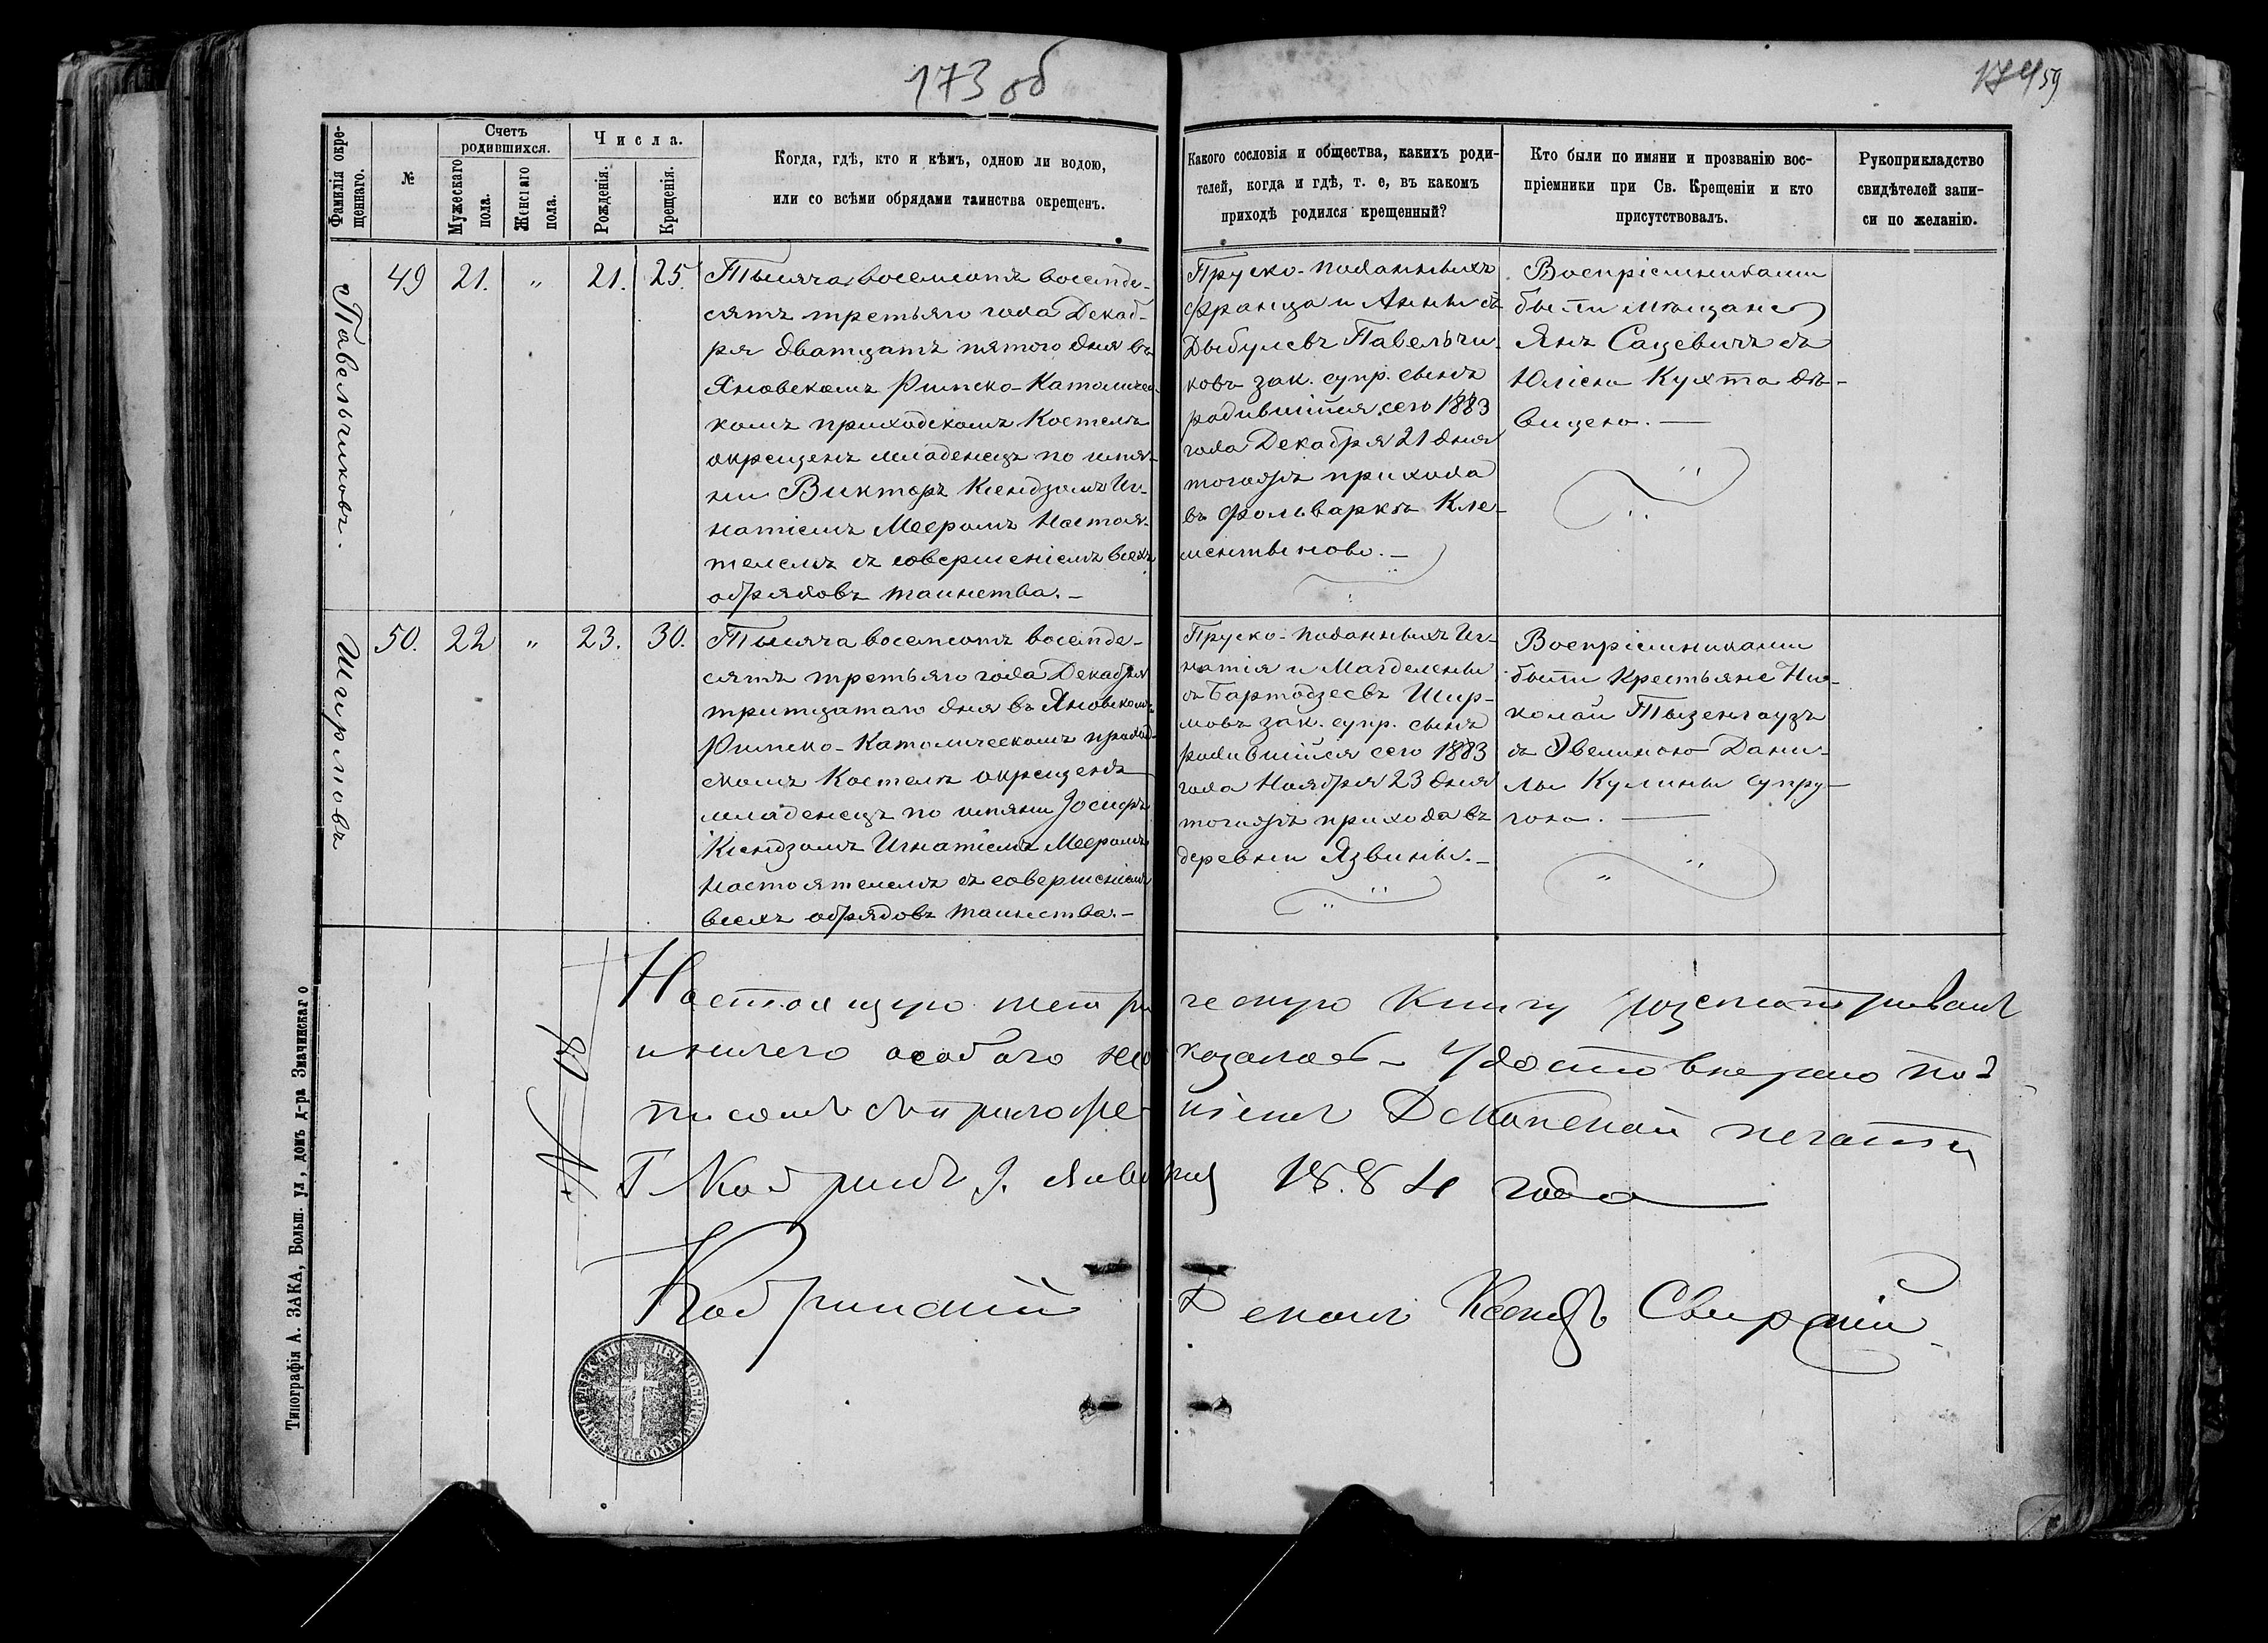 173 об
174 59
Фамилія окре-
щеннаго.
№
Счетъ
родившихся.
Мужескаго
пола.
Женскаго
пола.
Числа.
Рожденія.
Крещенія.
Когда, гдѣ, кто и кѣмъ, одною ли водою,
или со всѣми обрядами таинства окрещенъ.
Какого сословія и общества, какихъ роди-
телей, когда и гдѣ, т. е, въ какомъ
приходѣ родился крещенный?
Кто были по имяни и прозванію вос-
пріемники при Св. Крещеніи и кто
присутствовалъ.
Рукоприкладство
свидѣтелей запи-
си по желанію.
Павельчиковъ.
49 21. " 21. 25.
Тысяча восемсотъ восемде-
сятъ третьяго года Декаб-
ря дватцатъ пятого дня въ
Яновскомъ Римско-Католичес-
комъ приходскомъ Костелѣ
окрещенъ младенецъ по имя-
ни Викторъ Ксендзомъ Иг-
натіемъ Мееромъ Настоя-
телемъ съ совершеніемъ всехъ
обрядовъ таинства.-
Пруско-поданныхъ
Франца и Анны съ
Дыбулевъ Павельчи-
ковъ зак. супр. сынъ
родившійся сего 1883
года Декабря 21 дня
тогожъ прихода
въ фольваркѣ Кле-
ментыново.-
Воспріемниками
были мѣщане
Янъ Сацевичъ съ
Юліею Кухта дѣ-
вицею.-
Ширмовъ
50. 22 " 23. 30.
Тысяча восемсотъ восемде-
сятъ третьяго года Декабря
тритцатаго дня въ Яновскомъ
Римско-Католическомъ приход-
скомъ Костелѣ окрещенъ
младенецъ по имяни Іосифъ
Ксендзомъ Игнатіемъ Мееромъ
Настоятелемъ съ совершеніемъ
всехъ обрядовъ таинства.-
Пруско-поданныхъ Иг-
натія и Магделены
съ Бартодзеевъ Шир-
мовъ зак. супр. сынъ
родившійся сего 1883
года Ноября 23 дня
тогожъ прихода въ
деревни Язвины.-
Воспріемниками
были крестьяне Ни-
колай Тызенгаузъ
съ Эвелиною Дани-
лы Кулины супру-
гою.-
Настоящую метрическую книгу розсматривалъ
и ничего особаго не оказалось - Удостовѣряю под
писомъ съ приложеніемъ Деканской печати
Г Кобринъ 9. Января 1884 года
№ 18
Кобринскій Деканъ Ксендзъ Свирскій
Типографія А. ЗАКА, Больш. ул., домъ д-ра Значинскаго